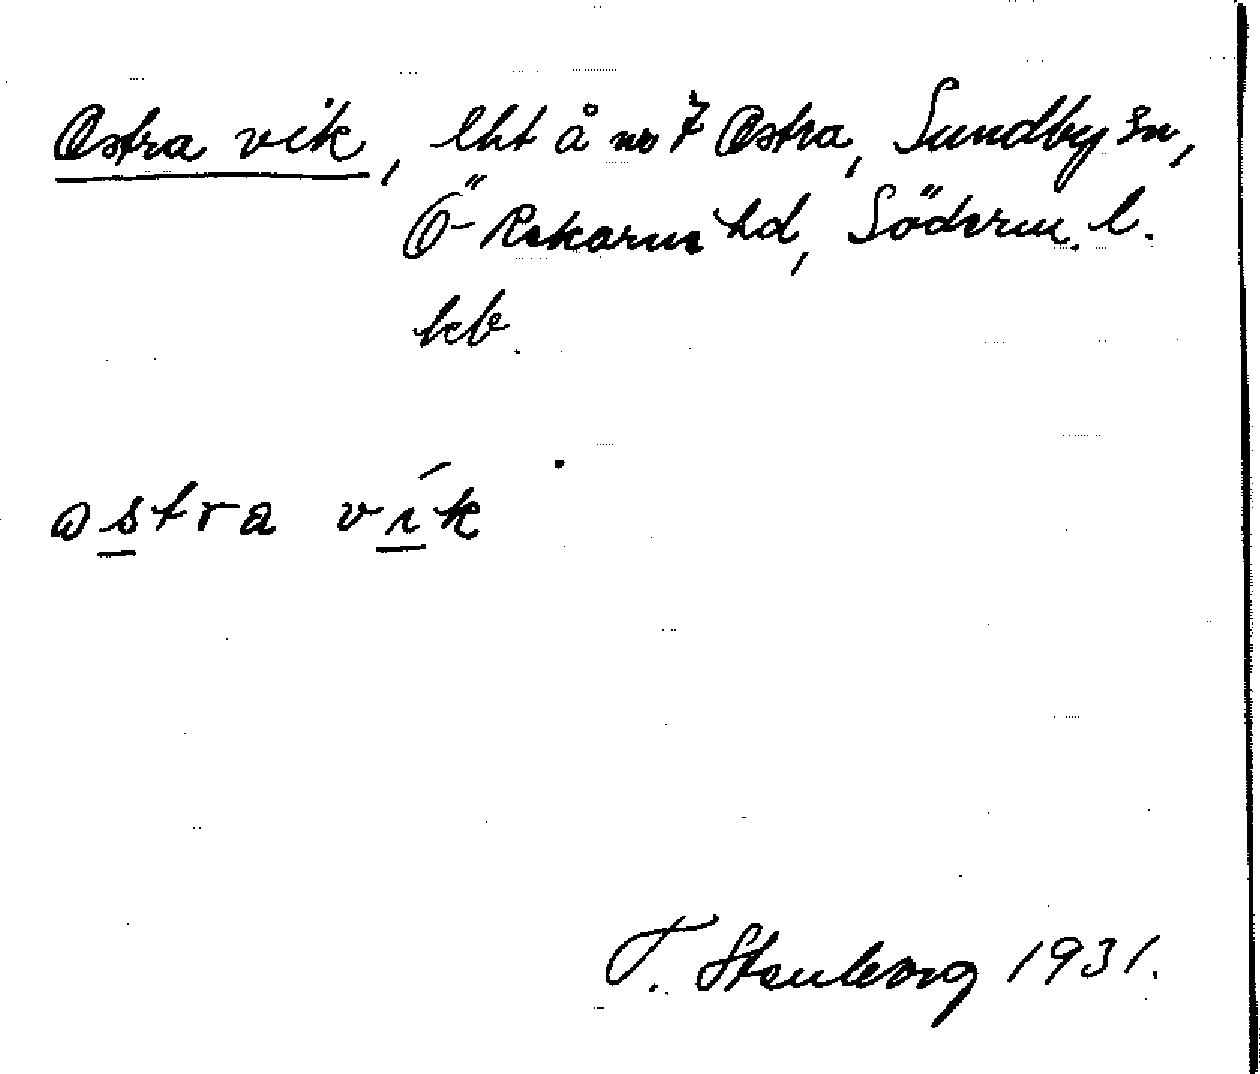 Ostra vik, lht å no 7 Ostra, Sundby sn,
Ö-Rekarne hd, Söderm. l.
kb.
ostra vík
T. Stenborg 1931.